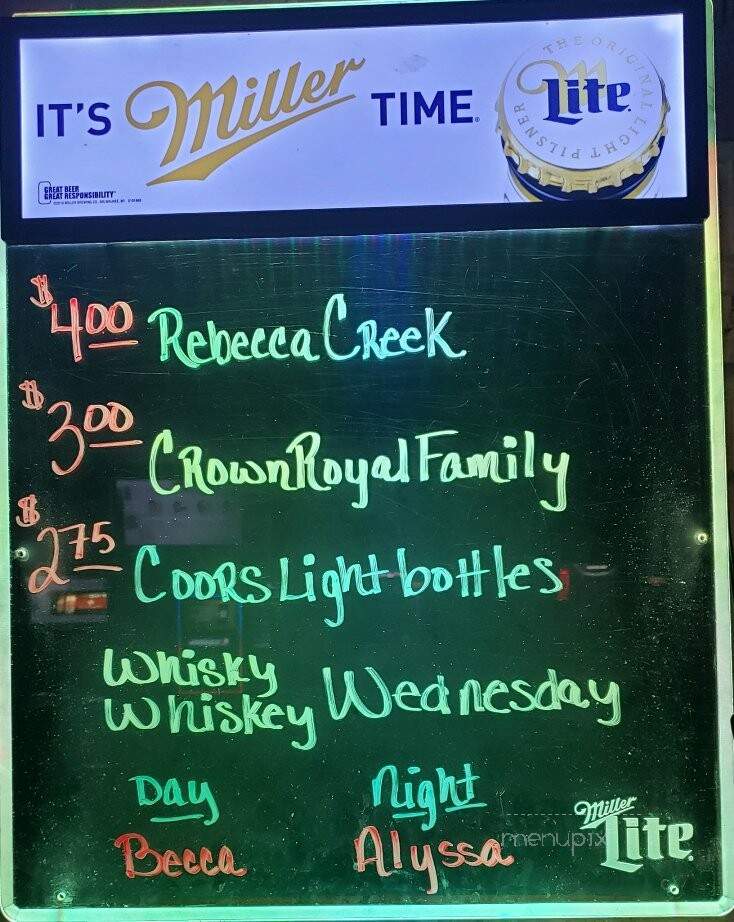 IT'S Miller TIME.
THE ORIGINAL LIGHT PILSNER
Lite
GREAT BEER
GREAT RESPONSIBILITY
$4.00 Rebecca Creek
$3.00 Crown Royal Family
$2.75 Coors Light bottles
Whisky
Whiskey Wednesday
Day Night
Becca Alyssa
Miller
Lite
menupix